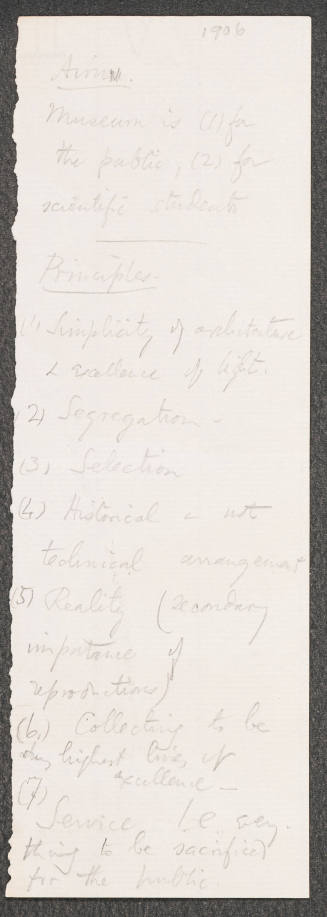 1906
Aims.
Museum is (1) for
the public, (2) for
scientific students
Principles-
(1) Simplicity of architecture
& excellence of light.
(2) Segregation -
(3) Selection
(4) Historical & not
technical arrangement
(5) Reality (secondary
importance of
reproductions)
(6) Collecting to be
highest lines of
excellence -
(7)
Service i.e. every-
thing to be sacrificed
for the public.